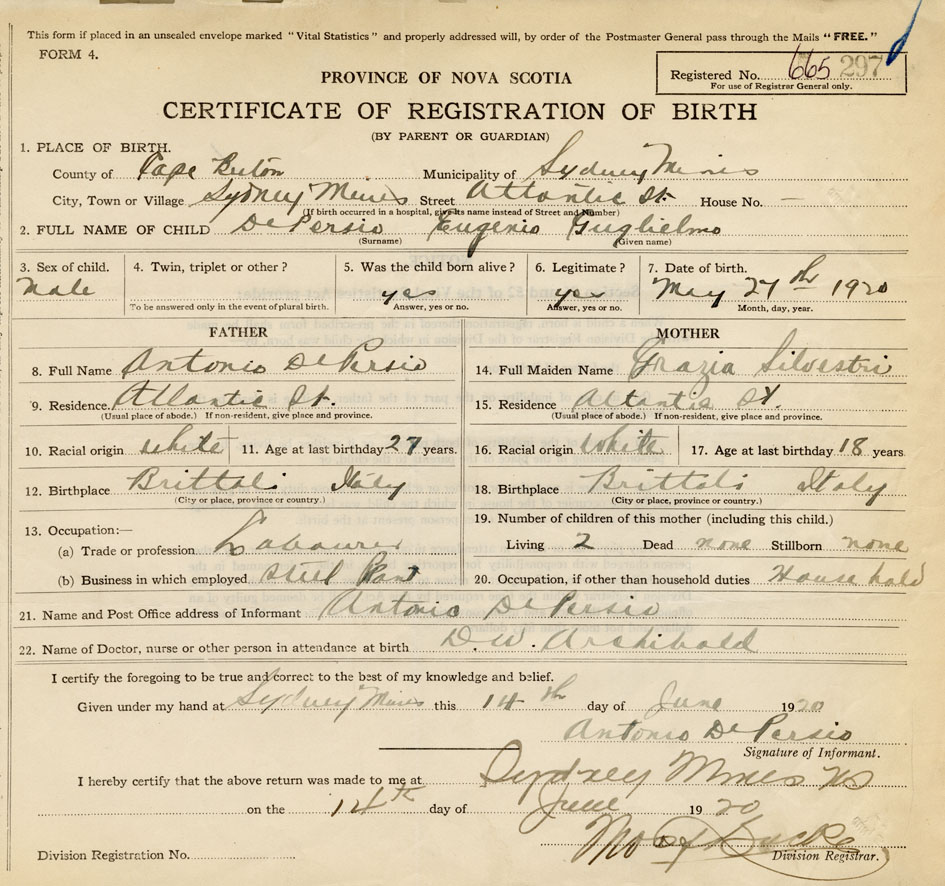 This form if placed in an unsealed envelope marked "Vital Statistics" and properly addressed will, by order of the Postmaster General pass through the Mails "FREE."
FORM 4.
Registered No. 665 297
For use of Registrar General only.
PROVINCE OF NOVA SCOTIA
CERTIFICATE OF REGISTRATION OF BIRTH
(BY PARENT OR GUARDIAN)
1. PLACE OF BIRTH.
County of Cape Breton Municipality of Sydney Mines
City, Town or Village Sydney Mines Street Atlantic St. House No. —
(If birth occurred in a hospital, give its name instead of Street and Number)
2. FULL NAME OF CHILD De Persio Eugenio Guglielmo
(Surname) (Given name)
3. Sex of child. 4. Twin, triplet or other? 5. Was the child born alive? 6. Legitimate? 7. Date of birth.
Male yes yes May 27th 1920
To be answered only in the event of plural birth. Answer, yes or no. Answer, yes or no. Month, day, year.
FATHER MOTHER
8. Full Name Antonio De Persio 14. Full Maiden Name Grazia Silvestri
9. Residence. Atlantic St. 15. Residence Atlantic St.
(Usual place of abode.) If non-resident, give place and province. (Usual place of abode.) If non-resident, give place and province.
10. Racial origin white 11. Age at last birthday 27 years. 16. Racial origin White 17. Age at last birthday 18 years
12. Birthplace Brittoli Italy 18. Birthplace Brittoli Italy
(City or place, province or country.) (City or place, province or country.)
13. Occupation:— 19. Number of children of this mother (including this child.)
(a) Trade or profession Labourer Living 2 Dead none Stillborn none
(b) Business in which employed Steel Plant 20. Occupation, if other than household duties House hold
21. Name and Post Office address of Informant Antonio De Persio
22. Name of Doctor, nurse or other person in attendance at birth D. W. Archibald
I certify the foregoing to be true and correct to the best of my knowledge and belief.
Given under my hand at Sydney Mines this 14th day of June 1920
Antonio De Persio
Signature of Informant.
I hereby certify that the above return was made to me at Sydney Mines NS
on the 14th day of June 1920
Division Registration No. Division Registrar.